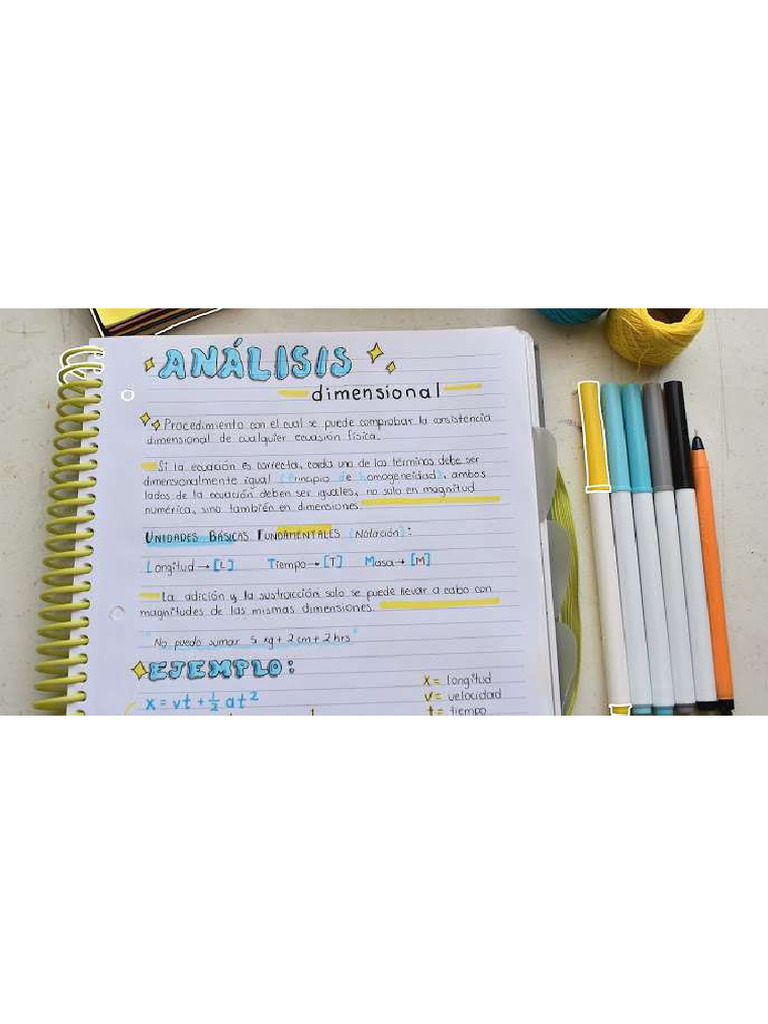 ANÁLISIS
dimensional
Procedimiento con el cual se puede comprobar la consistencia
dimensional de cualquier ecuasion física.
Si la ecuación es correcta, cada uno de los términos debe ser
dimensionalmente igual (Principio de homogeneidad), ambos
lados de la ecuación deben ser iguales, no solo en magnitud
numérica, sino también en dimensiones.
UNIDADES BÁSICAS FUNDAMENTALES (Notación):
Longitud → [L] Tiempo → [T] Masa → [M]
La adición y la sustracción solo se puede llevar a cabo con
magnitudes de las mismas dimensiones.
"No puedo sumar 5 kg + 2 cm + 2 hrs"
EJEMPLO:
x = longitud
x = vt + 1/2 at² v = velocidad
t = tiempo